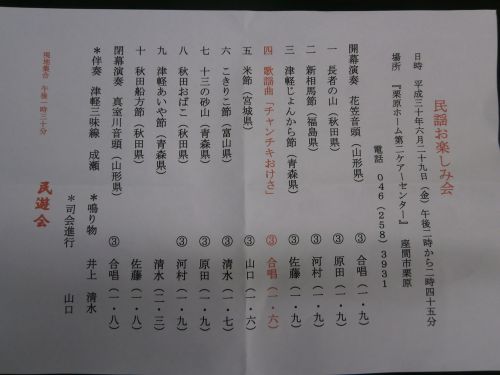 民謡お楽しみ会
日時　平成三十年六月二十九日（金）午後二時から二時四十五分
場所　『栗原ホーム第二ケアーセンター』　座間市栗原
電話　０４６（２５８）３９３１
開幕演奏　花笠音頭（山形県）　③　合唱（一・九）
一　長者の山（秋田県）　③　原田（一・九）
二　新相馬節（福島県）　③　河村（一・九）
三　津軽じょんから節（青森県）　③　佐藤（一・九）
四　歌謡曲「チャンチキおけさ」　③　合唱（一・六）
五　米節（宮城県）　③　山口（一・六）
六　こきりこ節（富山県）　③　清水（一・七）
七　十三の砂山（青森県）　③　原田（一・九）
八　秋田おばこ（秋田県）　③　河村（一・九）
九　津軽あいや節（青森県）　清水（二・三）
十　秋田船方節（秋田県）　③　佐藤（一・八）
閉幕演奏　真室川音頭（山形県）　③　合唱（一・八）
＊伴奏　津軽三味線　成瀬　＊鳴り物　井上　清水
＊司会進行　山口
現地集合　午後一時三十分　民遊会